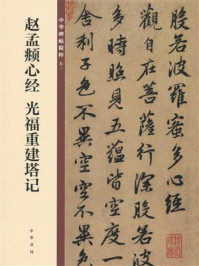 般若波羅蜜多心經
觀自在菩薩行深般若
多時照見五蘊皆空度
舍利子色不異空空
中华碑帖精粹
赵孟頫心经 光福重建塔记
中华书局